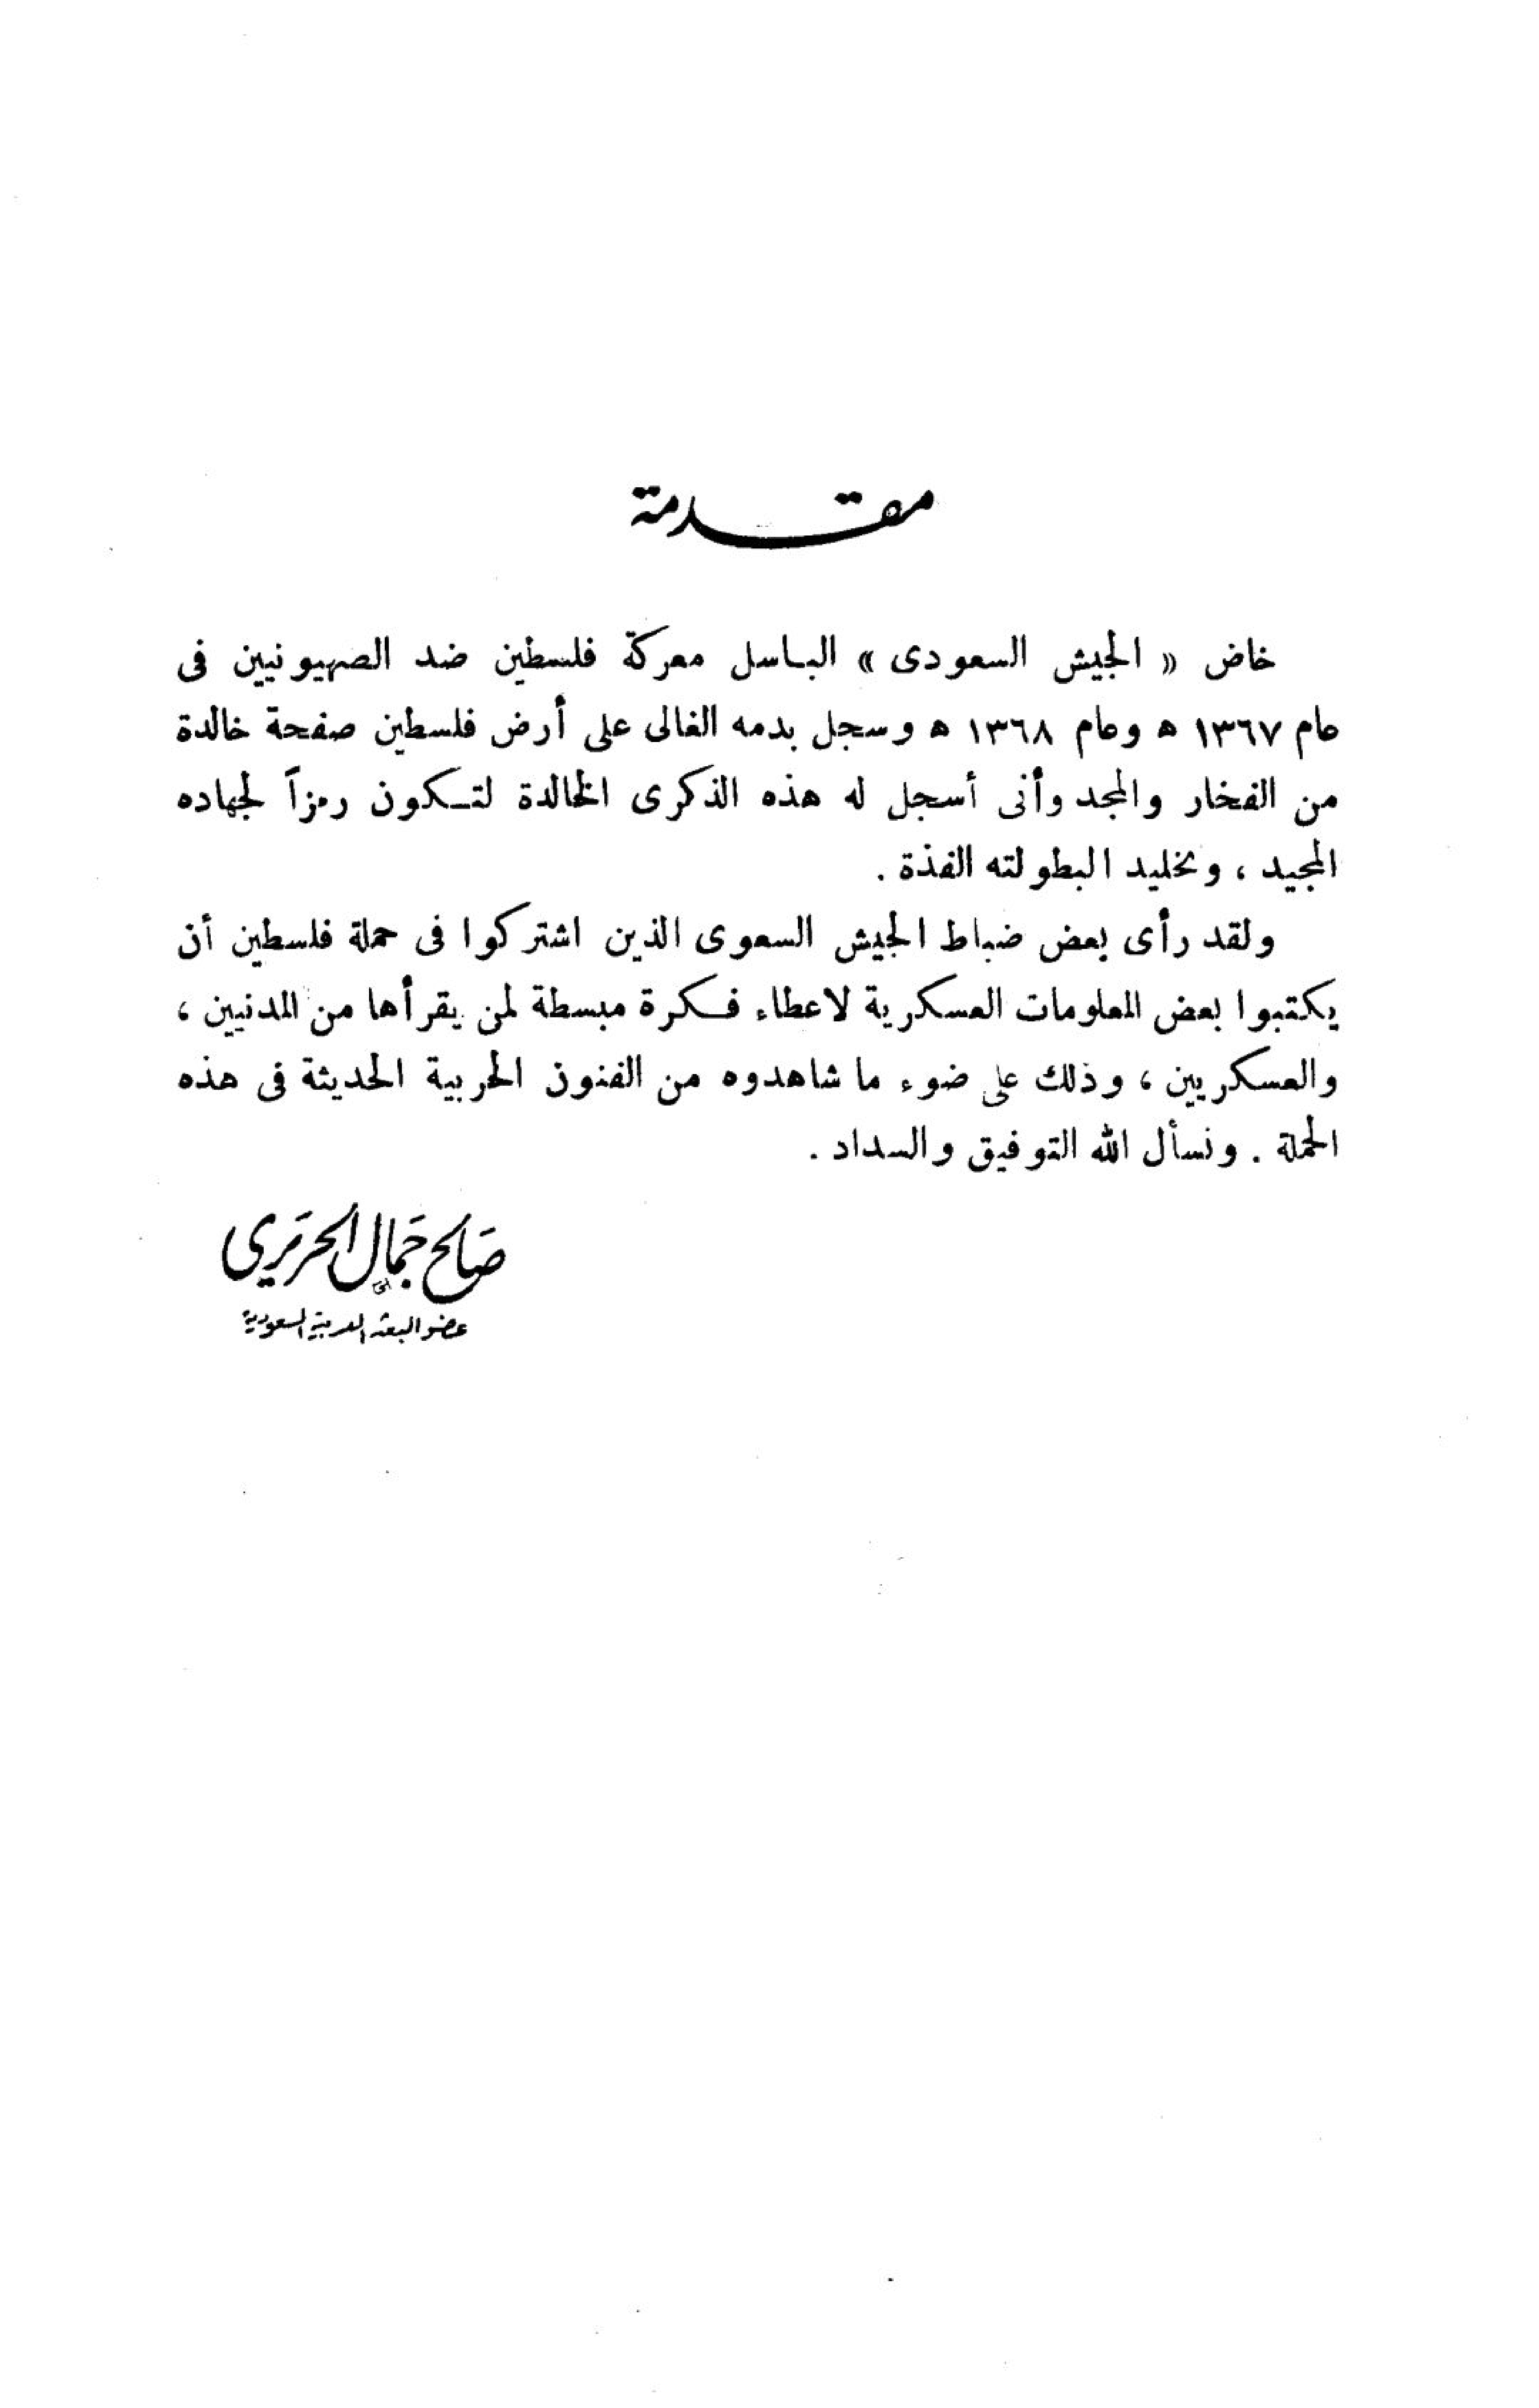 مقدمة
خاض « الجيش السعودى » الباسل معركة فلسطين ضد الصهيونيين فى
عام ١٣٦٧ ه وعام ١٣٦٨ ه وسجل بدمه الغالى على أرض فلسطين صفحة خالدة
من الفخار والمجد وأنى أسجل له هذه الذكرى الخالدة لتكون رمزاً لجهاده
المجيد ، وتخليد البطولته الفذة .
ولقد رأى بعض ضباط الجيش السعوى الذين اشتركوا فى حملة فلسطين أن
يكتبوا بعض المعلومات العسكرية لاعطاء فكرة مبسطة لمن يقرأها من المدنيين ،
والعسكريين ، وذلك على ضوء ما شاهدوه من الفنون الحربية الحديثة فى هذه
الحملة . ونسأل الله التوفيق والسداد .
صالح جمال الحريري
عضو البعثة العربية السعودية